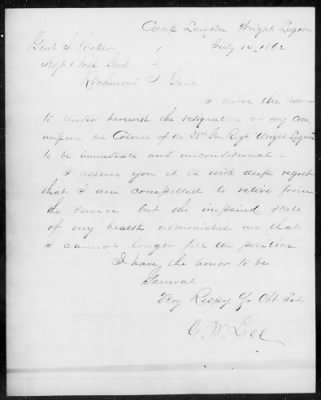 Camp Wright Legion
July 10, 1862
Genl S. Cooper
Adjt & Insp Genl
Richmond
I have the honor
to tender herewith the resignation of my com
mission as Colonel of the 38th Ga Regt Wright Legion
to be immediate and unconditional.
I assure you it is with deep regret
that I am compelled to retire from
the service but the impaired state
of my health admonishes me that
I cannot longer fill the position
I have the honor to be
General
Very Respy Yr Obt Svt
G. W. Lee